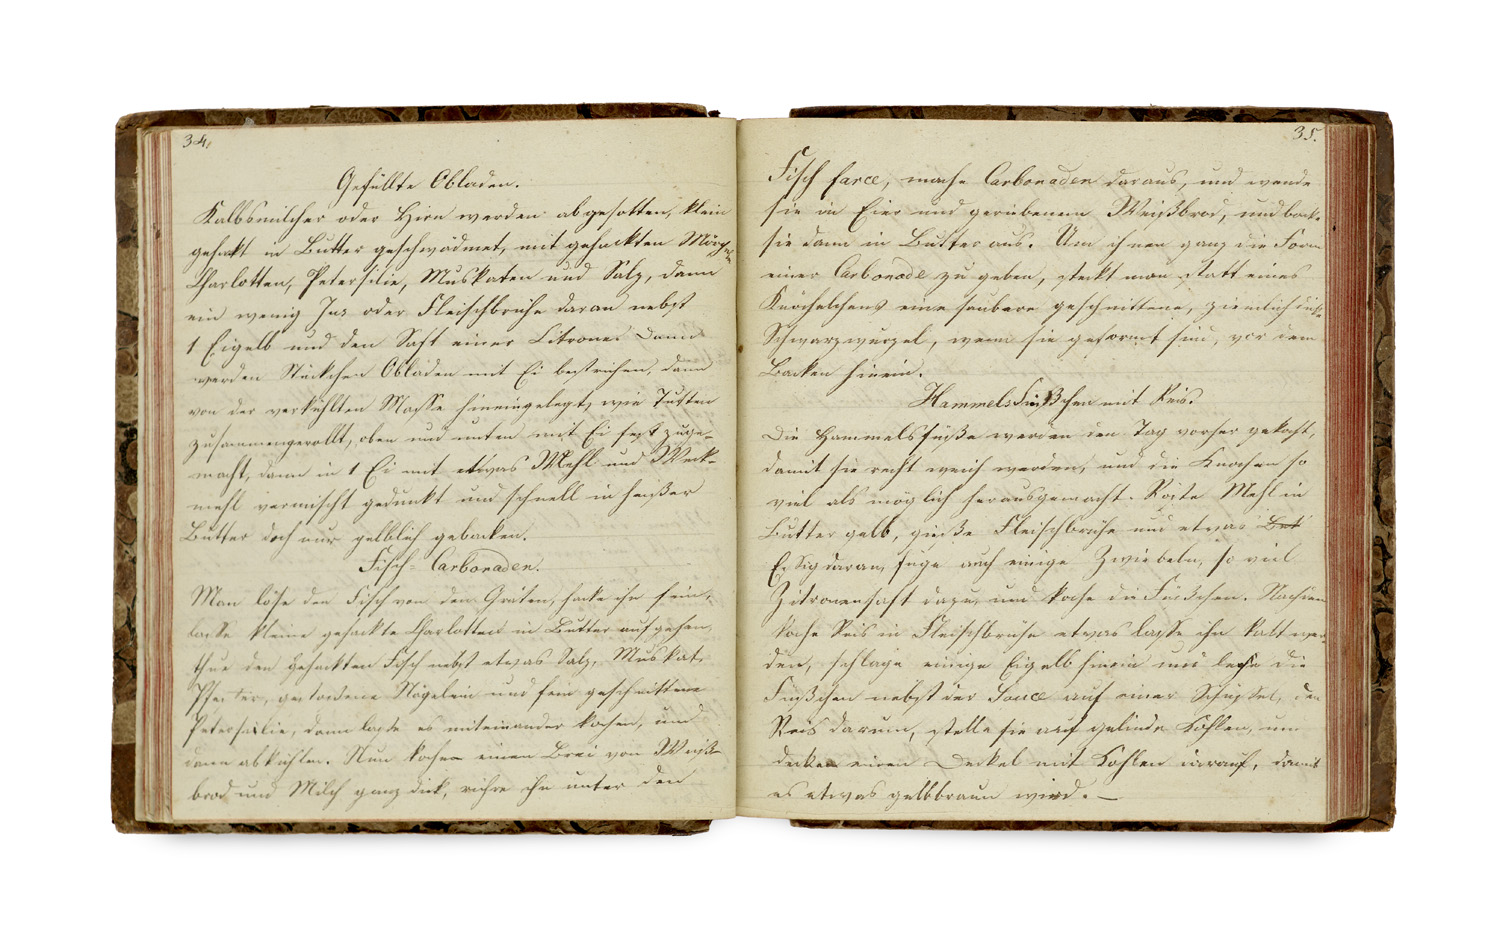 34.
Gefüllte Obladen.
Kalbsmilcher oder Hirn werden abgesotten, klein
gehakt in Butter geschwädmet, mit gehackten
Charlotten, Petersilie, Muskaten und Salz, dann
ein wenig Jus oder Fleischbrühe daran nebst
1 Eigelb und den Saft einer Citrone. Dann
werden Stückchen Obladen mit Ei bestrichen, dann
von der verkühlten Masse hineingelegt, wie
zusammengerollt, oben und unten mit Ei fest zuge-
macht, dann in 1 Ei mit etwas Mehl und Weck-
mehl vermischt gedunkt und schnell in heißer
Butter doch nur gelblich gebacken.
Fisch-Carbonaden.
Man löse den Fisch von den Gräten, hacke ihn fein,
lasse kleine gehackte Charlotten in Butter aufgehen,
thue den gehackten Fisch nebst etwas Salz, Muskat,
Pfeffer, gestoßene Nägelein und fein geschnittene
Petersilie, dann lasse es miteinander kochen, und
dann abkühlen. Nun koche einen Brei von Weiß-
brod und Milch ganz dick, rühre ihn unter den
35.
Fisch farce, mache Carbonaden daraus, und wende
sie in Eier und geriebenem Weißbrod, und backe
sie dann in Butter aus. Um ihnen ganz die Form
einer Carbonade zu geben, steckt man statt eines
Knöchelchens eine saubere geschnittene, ziemlich dicke
Schwarzwurzel, wenn sie geformt sind, vor dem
Backen hinein.
Hammelsfüßchen mit Reis.
Die Hammelsfüße werden den Tag vorher gekocht,
damit sie recht weich werden, und die Knochen so
viel als möglich herausgemacht. Röste Mehl in
Butter gelb, gieße Fleischbrühe und etwas
Essig daran, füge auch einige Zwiebeln, so viel
Zitronensaft dazu, und koche die Füßchen. Nachdem
koche Reis in Fleischbrühe etwas lasse ihn kalt wer-
den, schlage einige Eigelb hinein und lege die
Füßchen nebst der Sauce auf einer Schüssel, den
Reis darum, stelle sie auf gelinde Kohlen, und
decke einen Deckel mit Kohlen darauf, damit
es etwas gelbbraun wird. —